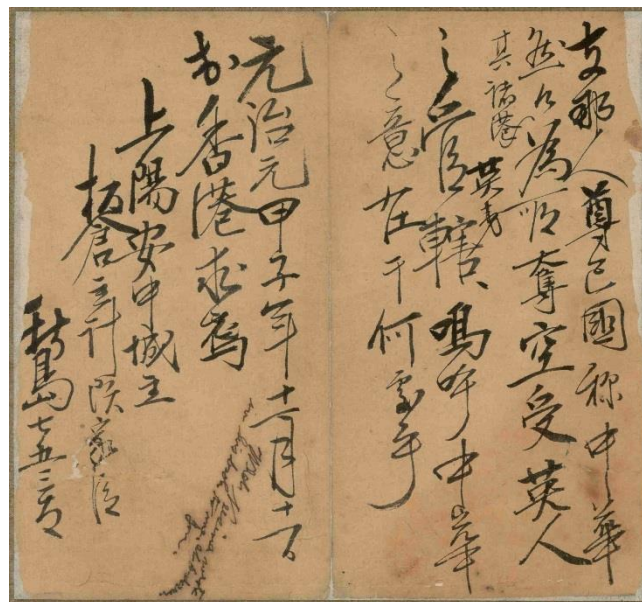 支那人尊己國称中華
然只為所奪空受英人
其諸港英夷
之管轄、嗚呼中華
之意在于何處乎
元治元甲子年十一月十一日
於香港求焉
上陽安中城主
板倉主計頭家臣
新島七五三太